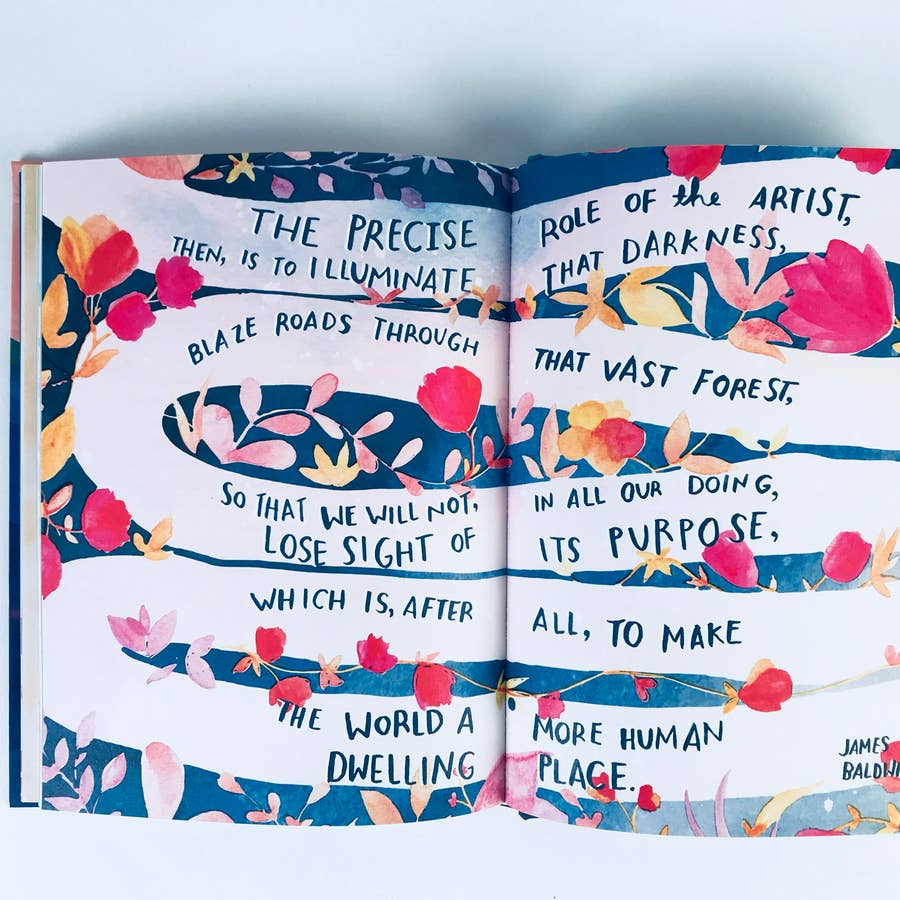 THE PRECISE ROLE OF the ARTIST,
THEN, IS TO ILLUMINATE THAT DARKNESS,
BLAZE ROADS THROUGH THAT VAST FOREST,
SO THAT WE WILL NOT, IN ALL OUR DOING,
LOSE SIGHT OF ITS PURPOSE,
WHICH IS, AFTER ALL, TO MAKE
THE WORLD A MORE HUMAN
DWELLING PLACE.
JAMES
BALDWI